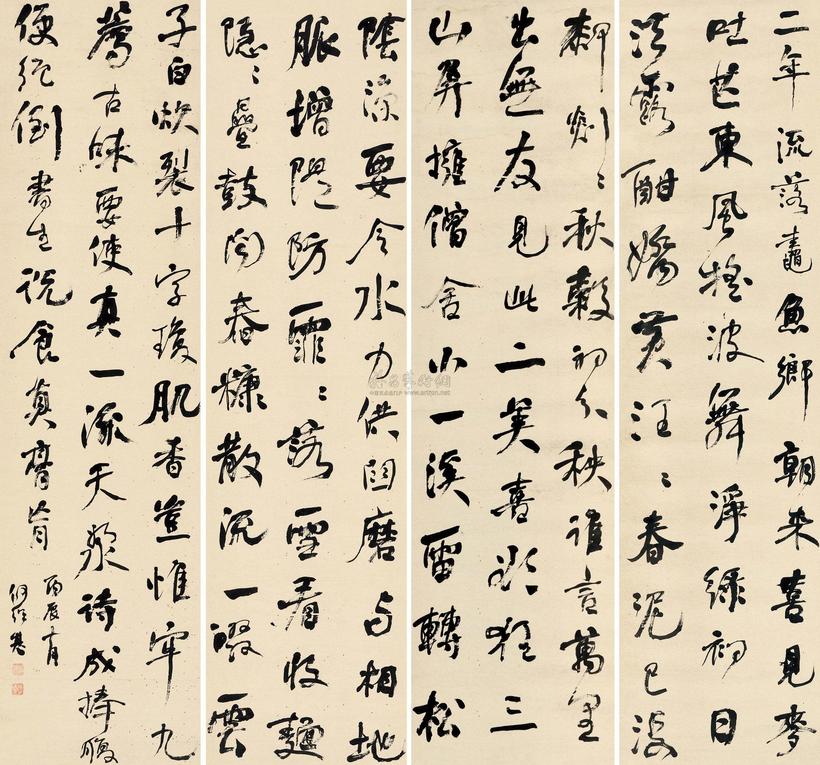 二年流落鼃魚鄉朝来喜見麥
吐芒東風搖波舞淨綠初日
泫露酣嬌黃汪〻春泥已没
厀剡〻秋穀初分秧誰言萬里
出無友見此二美喜欲狂三
山屏擁僧舍小一溪雷轉松
陰涼要令水力供臼磨与相地
脈增隄防霏〻落雪看收麵
隱〻疊鼓聞舂糠散流一啜雲
子白炊裂十字瓊肌香豈惟牢九
薦古味要使真一流天漿詩成捧腹
便絕倒書生說食真膏肓
丙辰 月
何紹基